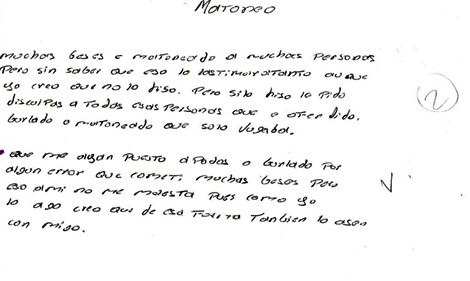 Matoneo
muchas beses e matoneado a muchas personas
Pero sin saber que eso lo lastimara tanto aunque
yo creo que no lo hiso. Pero si lo hiso le pido
disculpas a todas esas personas que e ofendido,
burlado o matoneado que solo jugaba.
2
• que me algan puesto apodos o burlado por
algun error que cometi muchas beses pero
eso a mi no me molesta pues como yo
lo ago creo que de esa forma tanbien lo asen
con migo.